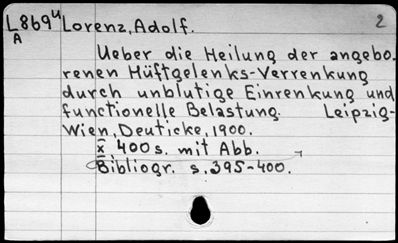 L869u Lorenz, Adolf. 2
A
Ueber die Heilung der angebo-
renen Hüftgelenks-Verrenkung
durch unblutige Einrenkung und
functionelle Belastung. Leipzig-
Wien, Deuticke, 1900.
x, 400 s. mit Abb.
Bibliogr. s. 395-400.